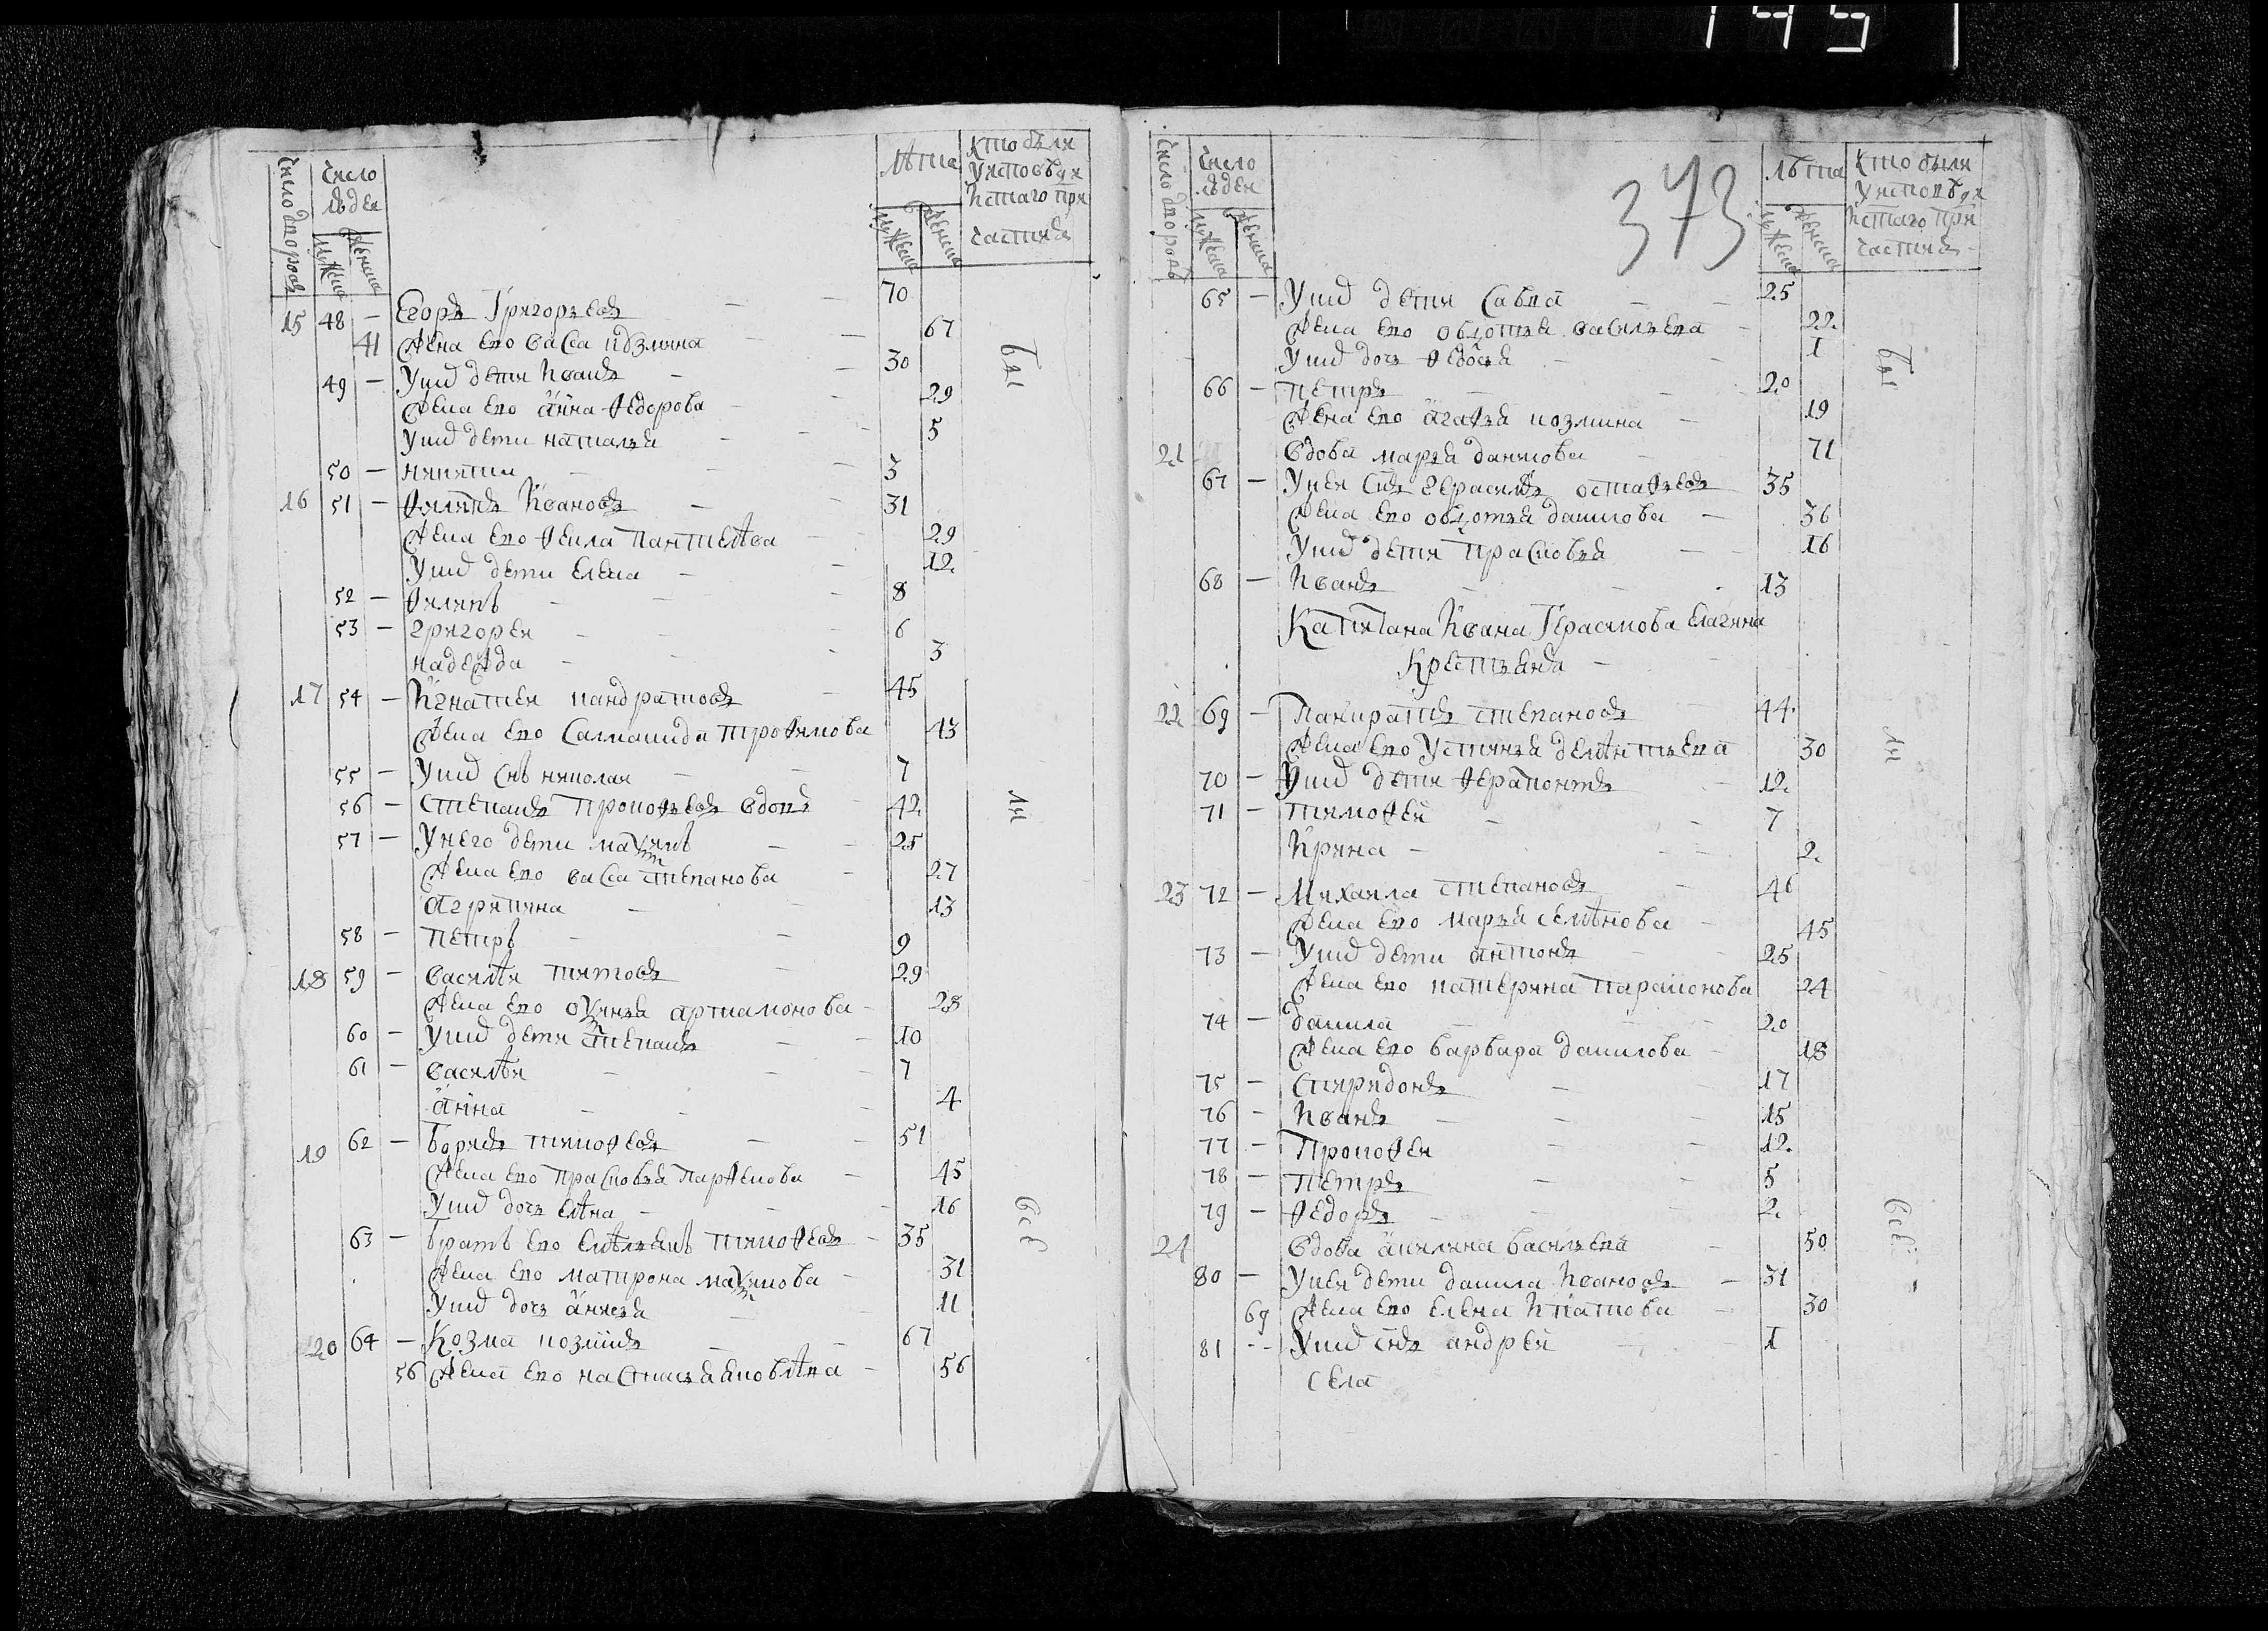 145
Число дворовъ
Число людей
мужеска
женска
лѣта
мужеска
женска
кто были
у исповѣди
и стаго при
частия
15 48 — Егоръ Григорьевъ 70
41 Жена его васса козмина 67
49 — У них дети Иванъ 30
Жена его анна Федорова 29
У них дети наталья 5
50 — никита 3
16 51 — Филипъ Ивановъ 31
Жена его Фекла Пантилѣва 29
У них дети Елена 12
52 — Филипъ 8
53 — григореи 6
надежда 3
17 54 — Игнатеи кандратовъ 45
Жена его Саламанида трофимова 43
55 — У них снъ николаи 7
56 — Степанъ Прокофьевъ вдовъ 42
57 — У него дети максимъ 25
Жена его васса степанова 27
агрипина 13
58 — Петръ 9
18 59 — василѣи титовъ 29
Жена его оксинья артамонова 28
60 — У них дети степанъ 10
61 — василѣи 7
анна 4
19 62 — Борисъ тимофевъ 51
Жена его Прасковья Парфенова 45
У них дочь елѣна 16
63 — братъ его емѣльянъ тимофевъ 35
Жена его матрона максимова 31
У них дочь анисья 11
20 64 — Козма козминъ 67
56 Жена его настасья яковлѣва 56
бы
ли
всѣ
373
Число дворовъ
Число людей
мужеска
женска
лѣта
мужеска
женска
кто были
у исповѣди
и стаго при
частия
65 — У них дети Савва 25
Жена его овдотья васильева 22
У них дочь Федосья 1
66 — петръ 20
Жена его агафья козмина 19
21 Вдова марья данилова 71
67 — У неи снъ герасимъ остафьевъ 35
Жена его овдотья данилова 36
У них дети прасковья 16
68 — Иванъ 13
Капитана Ивана Герасимова Елагина
Крестьяня
22 69 — Панкратъ степановъ 44
Жена его Устинья дементьева 30
70 — У них дети Ферапонтъ 12
71 — тимофеи 7
Ирина 2
23 72 — Михаила степановъ 46
Жена его марья семѣнова 45
73 — У них дети антонъ 25
Жена его катерина Парамонова 24
74 — данила 20
Жена его варвара данилова 18
75 — Спиридонъ 17
76 — Иванъ 15
77 — Прокофеи 12
78 — петръ 5
79 — Федоръ 2
24 Вдова акилина васильева 50
80 — У неи дети данила Ивановъ 31
69 Жена его елена Игнатова 30
81 — У них снъ андреи 1
Села
бы
ли
всѣ